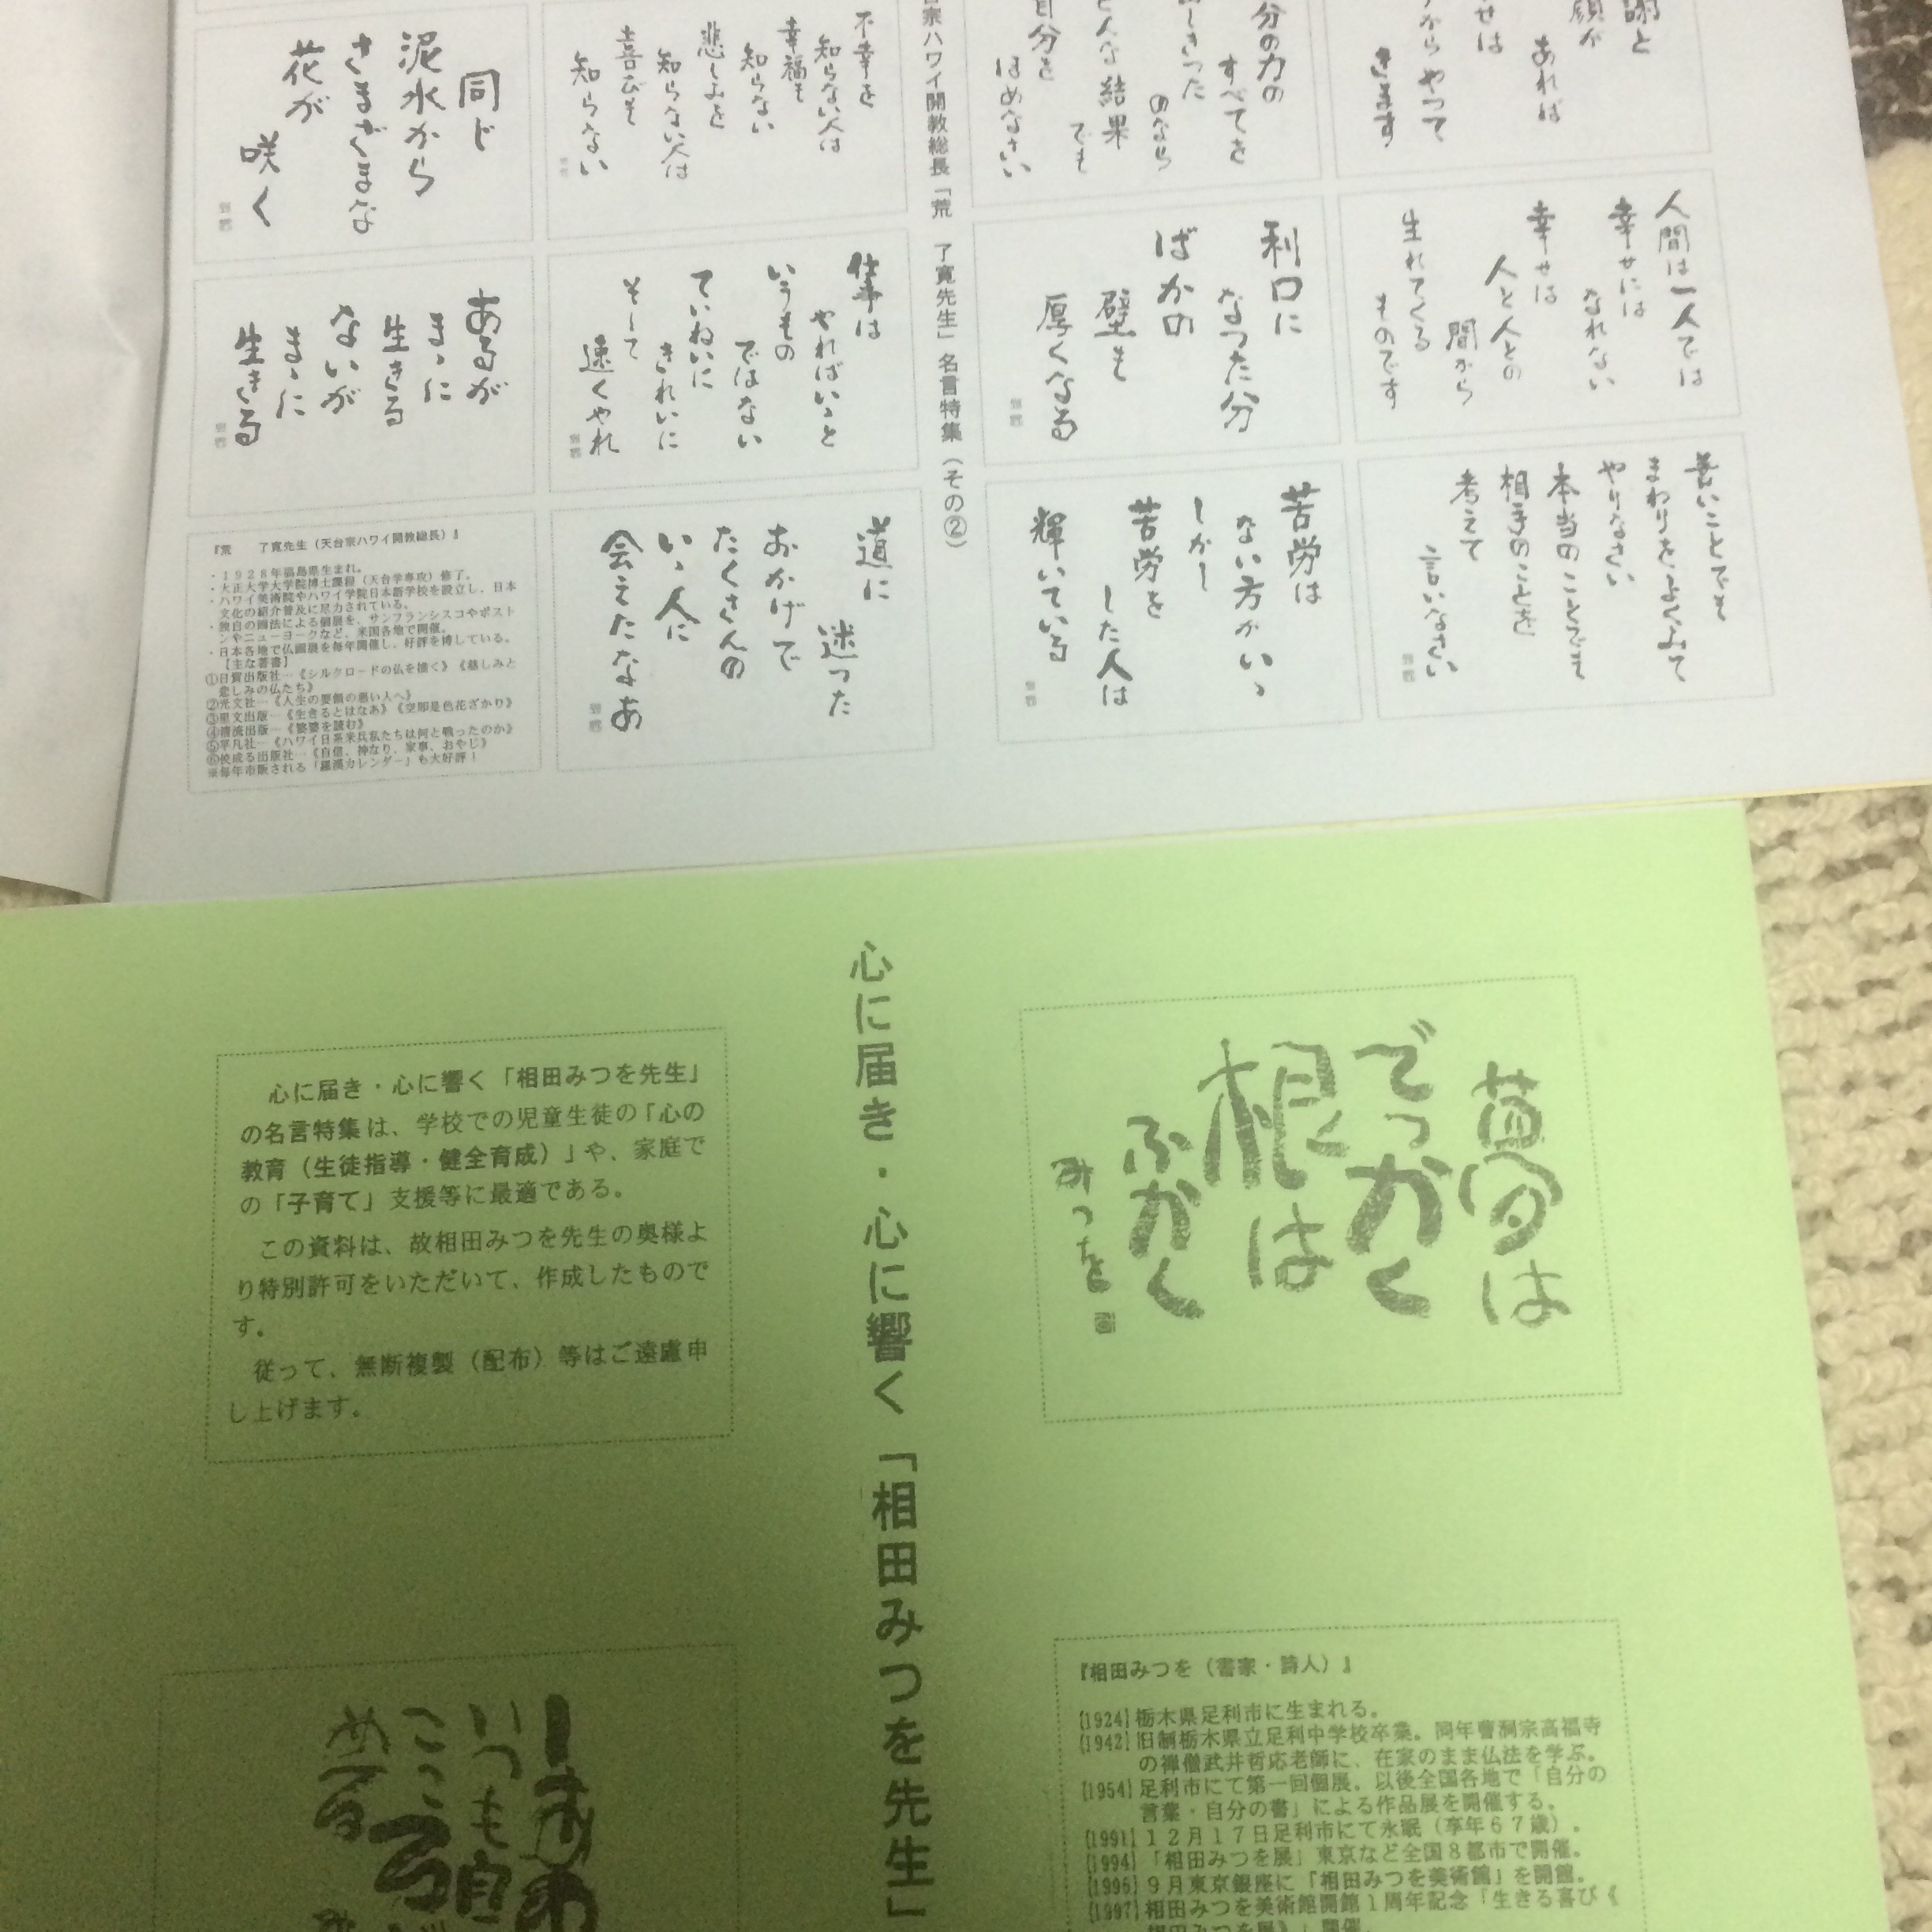 あれば
からやって
きます
人間は一人では
幸せには
なれない
幸せは
人と人との
間から
生れてくる
ものです
善いことでも
まわりをよくみて
やりなさい
本当のことでも
相手のことを
考えて
言いなさい
分の力の
すべてを
のなら
結果
でも
自分を
ほめなさい
利口に
なった分
ばかの
壁も
厚くなる
苦労は
ない方がいゝ
しかし
苦労を
した人は
輝いている
宗ハワイ開教総長「荒 了寛先生」名言特集（その②）
不幸を
知らない人は
幸福も
知らない
悲しみを
知らない人は
喜びも
知らない
仕事は
やればいゝと
いうもの
ではない
ていねいに
きれいに
そして
速くやれ
道に
迷った
おかげで
たくさんの
いゝ人に
会えたなあ
同じ
泥水から
さまざまな
花が
咲く
あるが
まゝに
生きる
ないが
まゝに
生きる
『荒 了寛先生（天台宗ハワイ開教総長）』
・１９２８年福島県生まれ。
・大正大学大学院博士課程（天台学専攻）修了。
・ハワイ美術院やハワイ学院日本語学校を設立し、日本
文化の紹介普及に尽力されている。
・独自の画法による個展を、サンフランシスコやボスト
ンやニューヨークなど、米国各地で開催。
・日本各地で仏画展を毎年開催し、好評を博している。
【主な著書】
①日貿出版社…《シルクロードの仏を描く》《慈しみと
悲しみの仏たち》
②光文社…《人生の要領の悪い人へ》
③里文出版…《生きるとはなあ》《空即是色花ざかり》
④清流出版…《娑婆を読む》
⑤平凡社…《ハワイ日系米兵私たちは何と戦ったのか》
⑥佼成る出版社…《自信、神なり、家事、おやじ》
※毎年市販される「羅漢カレンダー」も大好評！
夢は
でっかく
根は
ふかく
みつを
心に届き・心に響く「相田みつを先生」
心に届き・心に響く「相田みつを先生」
の名言特集は、学校での児童生徒の「心の
教育（生徒指導・健全育成）」や、家庭で
の「子育て」支援等に最適である。
この資料は、故相田みつを先生の奥様よ
り特別許可をいただいて、作成したもので
す。
従って、無断複製（配布）等はご遠慮申
し上げます。
『相田みつを（書家・詩人）』
[1924] 栃木県足利市に生まれる。
[1942] 旧制栃木県立足利中学校卒業。同年曹洞宗高福寺
の禅僧武井哲応老師に、在家のまま仏法を学ぶ。
[1954] 足利市にて第一回個展。以後全国各地で「自分の
言葉・自分の書」による作品展を開催する。
[1991] １２月１７日足利市にて永眠（享年６７歳）。
[1994] 「相田みつを展」東京など全国８都市で開催。
[1996] ９月東京銀座に「相田みつを美術館」を開館。
[1997] 相田みつを美術館開館１周年記念「生きる喜び《
相田みつを展》」開催。
しあわ
いつも自
こころ
める